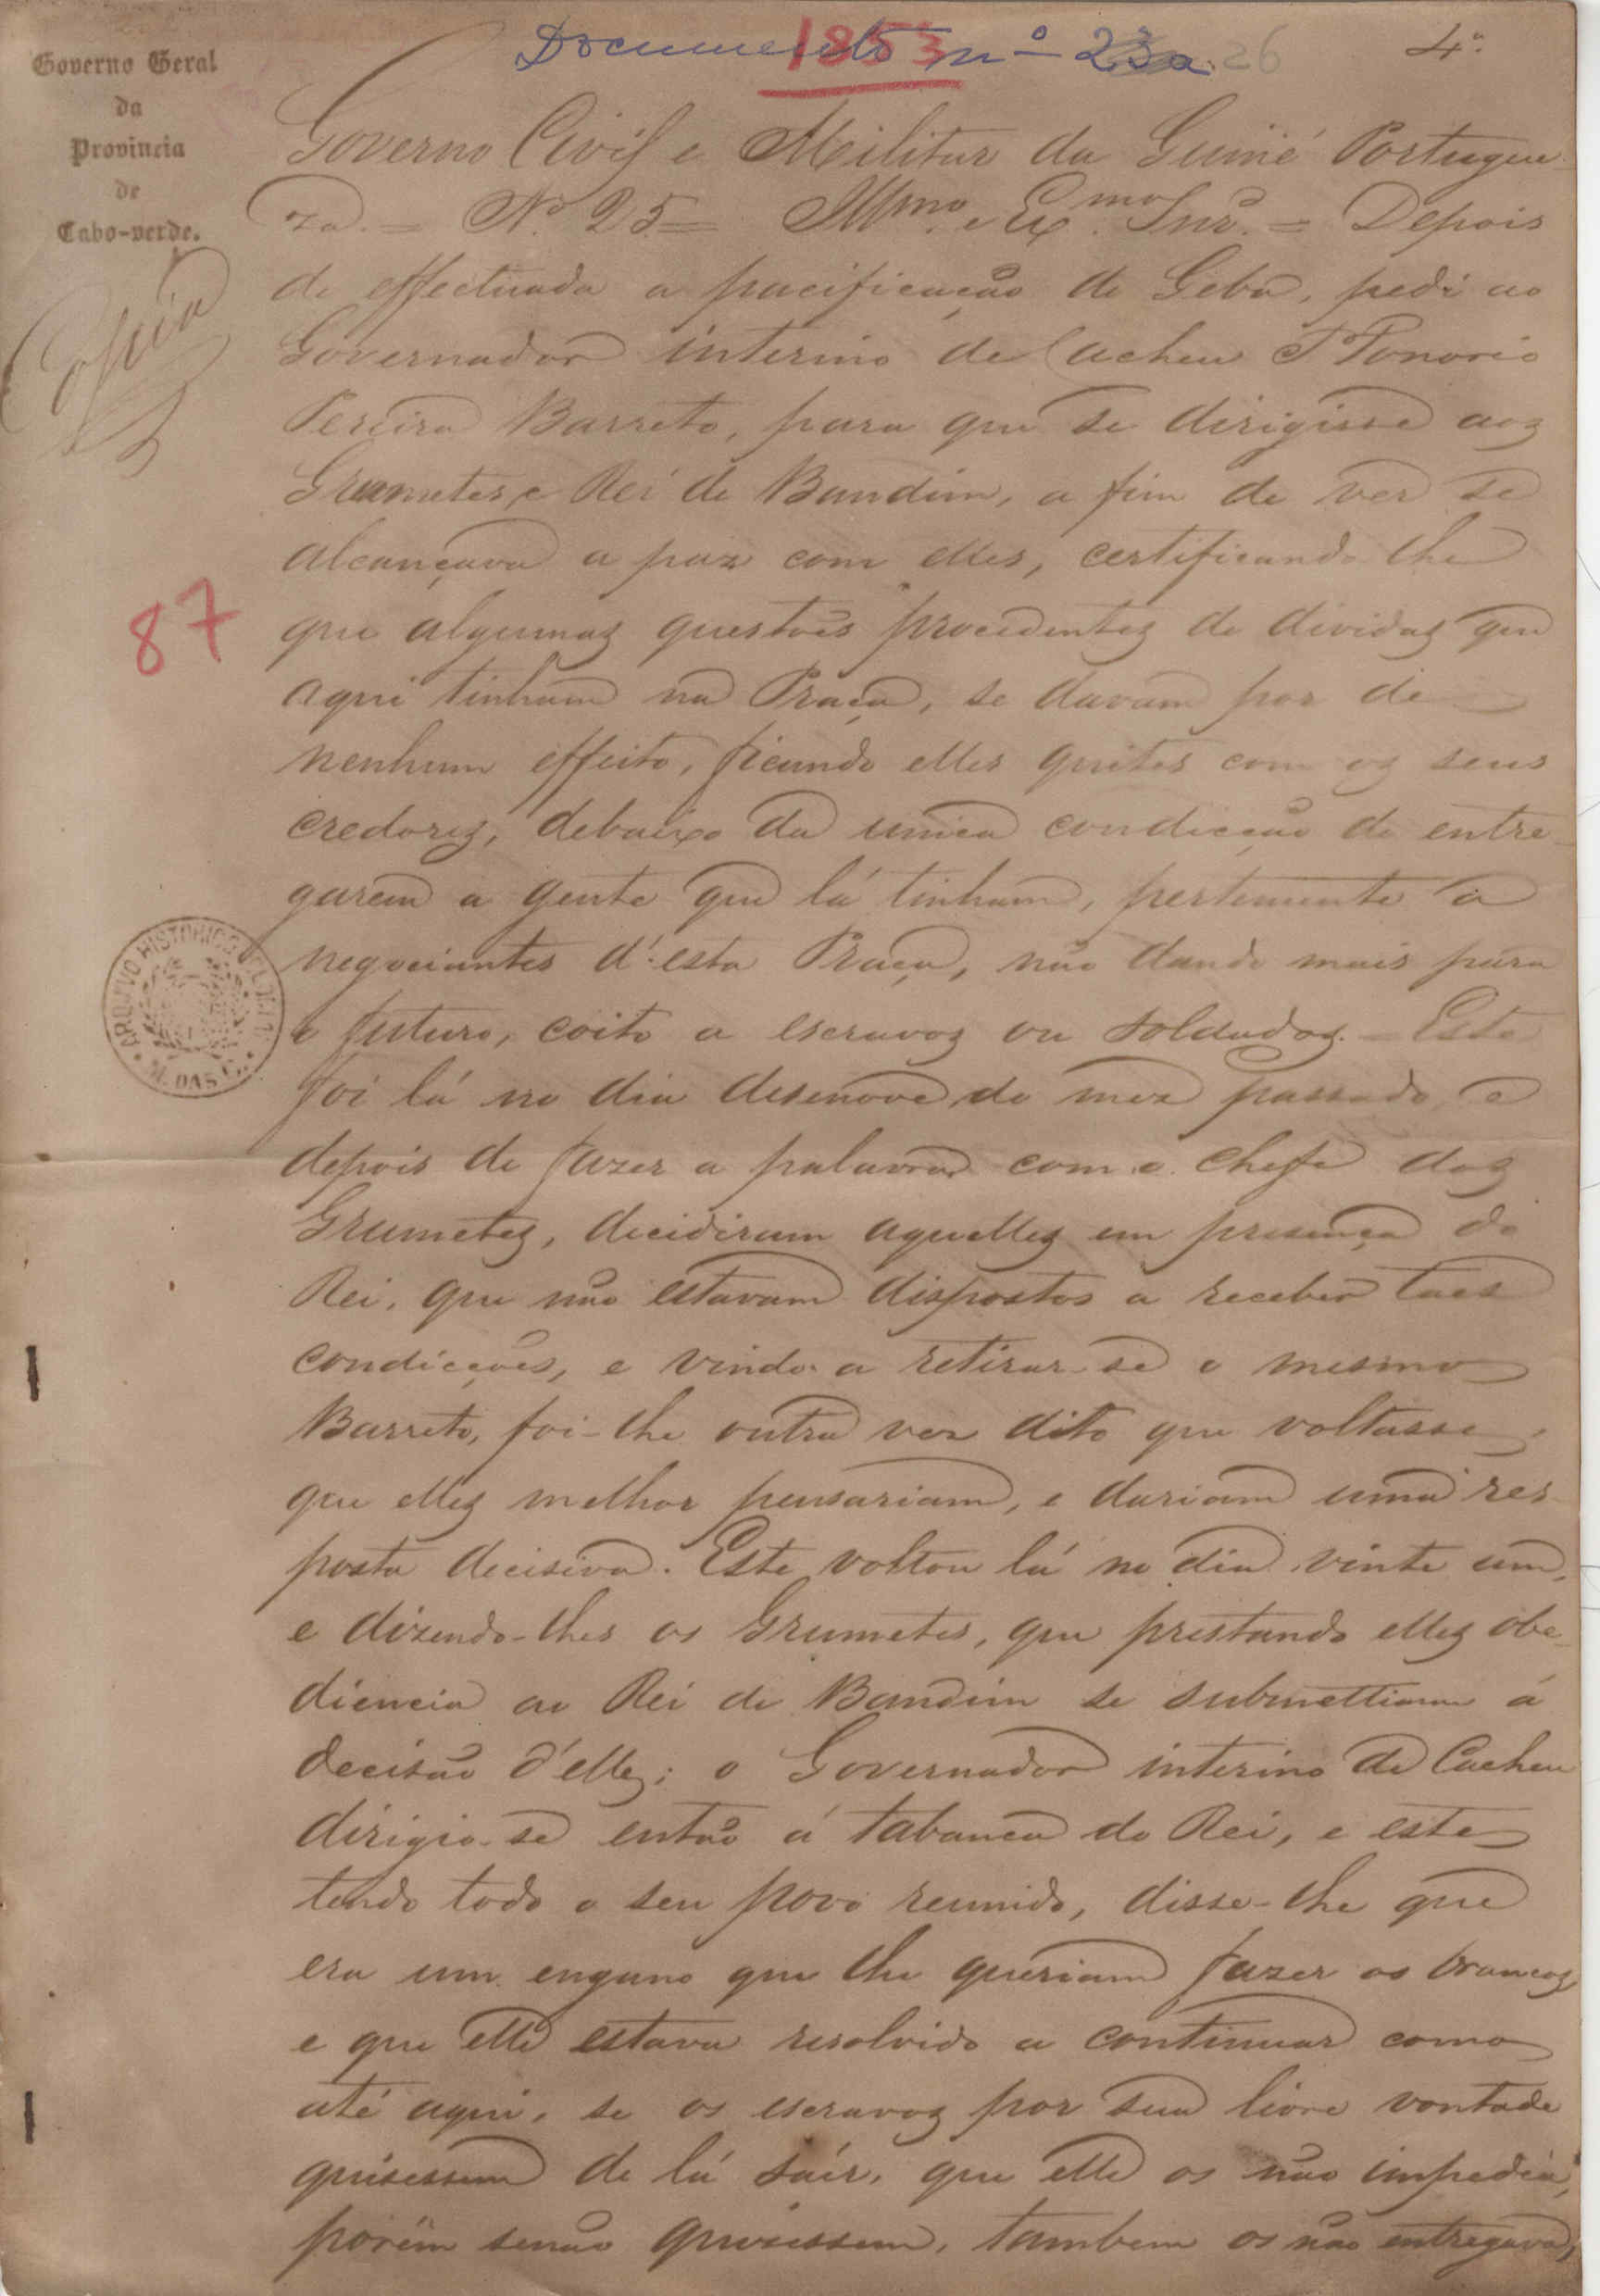 Governo Geral
da
Provincia
de
Cabo-verde.
Documento nº 23a 26
1853
4º
Copia
87
ARQUIVO HISTORICO
M. DAS C.
Governo Civil e Militar da Guiné Portugue-
za. = Nº 25 = Illmo. e Exmo. Snr. = Depois
de effectuada a pacificação de Geba, pedi ao
Governador interino de Cacheu Honorio
Pereira Barreto, para que se dirigisse aos
Grumetes, e Rei de Bandim, a fim de ver se
alcançava a paz com elles, certificando-lhe
que algumas questões procedentes de dividas que
aqui tinham na Praça, se davam por de
nenhum effeito, ficando elles quites com os seus
credores, debaixo da unica condicção de entre-
garem a gente que lá tinham, pertencente a
negociantes d'esta Praça, não dando mais para
o futuro, coito a escravos ou soldados. - Este
foi lá no dia desenove do mez passado, e
depois de fazer a palavra com o chefe dos
Grumetes, decidiram aquelles em presença do
Rei, que não estavam dispostos a receber taes
condicções, e vindo a retirar-se o mesmo
Barreto, foi-lhe outra vez dito que voltasse,
que elles melhor pensariam, e dariam uma res-
posta decisiva. Este voltou lá no dia vinte um,
e dizendo-lhes os Grumetes, que prestando elles obe-
diencia ao Rei de Bandim se submettiam á
decisão d'elle; o Governador interino de Cacheu
dirigio-se então á tabanca do Rei, e este
tendo todo o seu povo reunido, disse-lhe que
era um engano que lhe queriam fazer os brancos
e que elle estava resolvido a continuar como
até aqui, se os escravos por sua livre vontade
quisessem de lá sair, que elle os não impedia,
porém senão quisessem, tambem os não entregava,